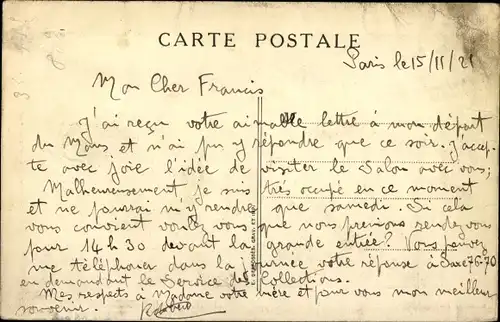 CARTE POSTALE
Paris le 15/11/21
Mon Cher Francis
J'ai reçu votre aimable lettre à mon départ
du Mans et n'ai pu y répondre que ce soir. J'accep-
te avec joie l'idée de visiter le Salon avec vous;
Malheureusement je suis très occupé en ce moment
et ne pourrai m'y rendre que samedi. Si cela
vous convient voulez vous que nous prenions rendez vous
pour 14 h 30 devant la grande entrée? Vous pouvez
me téléphoner dans la journée votre réponse à Saxe 76-70
en demandant le Service des Collections.
Mes respects à Madame votre mère et pour vous mon meilleur
souvenir.